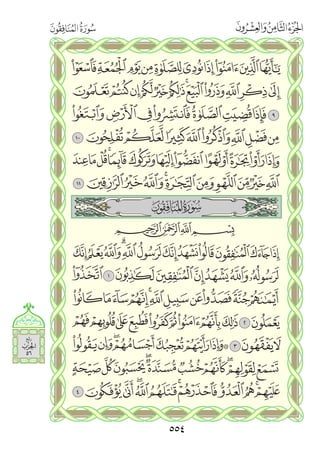 الجزء الثامن والعشرون
سورة المنافقون
يَا أَيُّهَا الَّذِينَ ءَامَنُوا إِذَا نُودِيَ لِلصَّلَوٰةِ مِن يَوْمِ الْجُمُعَةِ فَاسْعَوْا
إِلَىٰ ذِكْرِ اللَّهِ وَذَرُوا الْبَيْعَ ذَٰلِكُمْ خَيْرٌ لَّكُمْ إِن كُنتُمْ تَعْلَمُونَ
٩ فَإِذَا قُضِيَتِ الصَّلَوٰةُ فَانتَشِرُوا فِي الْأَرْضِ وَابْتَغُوا
مِن فَضْلِ اللَّهِ وَاذْكُرُوا اللَّهَ كَثِيرًا لَّعَلَّكُمْ تُفْلِحُونَ ١٠
وَإِذَا رَأَوْا تِجَٰرَةً أَوْ لَهْوًا انفَضُّوا إِلَيْهَا وَتَرَكُوكَ قَائِمًا قُلْ مَا عِندَ
اللَّهِ خَيْرٌ مِّنَ اللَّهْوِ وَمِنَ التِّجَٰرَةِ وَاللَّهُ خَيْرُ الرَّٰزِقِينَ ١١
سورة المنافقون
بِسْمِ اللَّهِ الرَّحْمَٰنِ الرَّحِيمِ
إِذَا جَاءَكَ الْمُنَٰفِقُونَ قَالُوا نَشْهَدُ إِنَّكَ لَرَسُولُ اللَّهِ وَاللَّهُ يَعْلَمُ إِنَّكَ
لَرَسُولُهُ وَاللَّهُ يَشْهَدُ إِنَّ الْمُنَٰفِقِينَ لَكَٰذِبُونَ ١ اتَّخَذُوا
أَيْمَٰنَهُمْ جُنَّةً فَصَدُّوا عَن سَبِيلِ اللَّهِ إِنَّهُمْ سَاءَ مَا كَانُوا
يَعْمَلُونَ ٢ ذَٰلِكَ بِأَنَّهُمْ ءَامَنُوا ثُمَّ كَفَرُوا فَطُبِعَ عَلَىٰ قُلُوبِهِمْ فَهُمْ
لَا يَفْقَهُونَ ٣ وَإِذَا رَأَيْتَهُمْ تُعْجِبُكَ أَجْسَامُهُمْ وَإِن يَقُولُوا
تَسْمَعْ لِقَوْلِهِمْ كَأَنَّهُمْ خُشُبٌ مُّسَنَّدَةٌ يَحْسَبُونَ كُلَّ صَيْحَةٍ
عَلَيْهِمْ هُمُ الْعَدُوُّ فَاحْذَرْهُمْ قَٰتَلَهُمُ اللَّهُ أَنَّىٰ يُؤْفَكُونَ ٤
الحزب
٥٦
٥٥٤